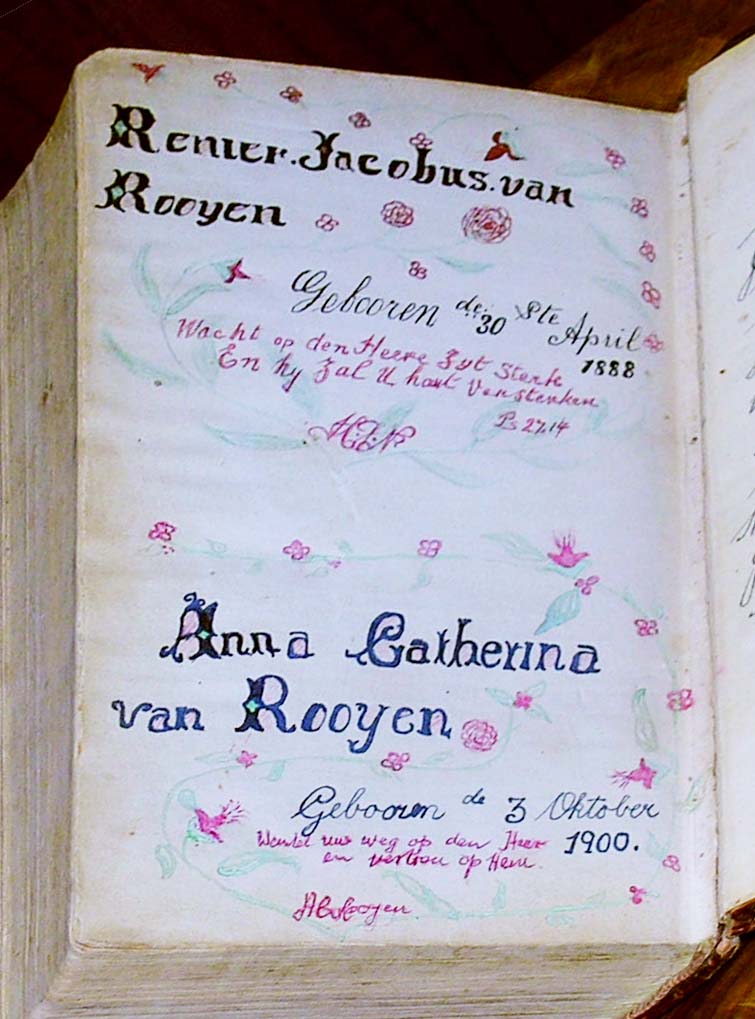 Renier. Jacobus. van
Rooyen
Gebooren de 30 Ste April
1888
Wacht op den Heere Zyt Sterk
En hy Zal U hart Versterken
Ps 27.14
Anna Catherina
van Rooyen
Gebooren de 3 Oktober
1900.
Wentel uw weg op den Heer
en vertrou op Hem.